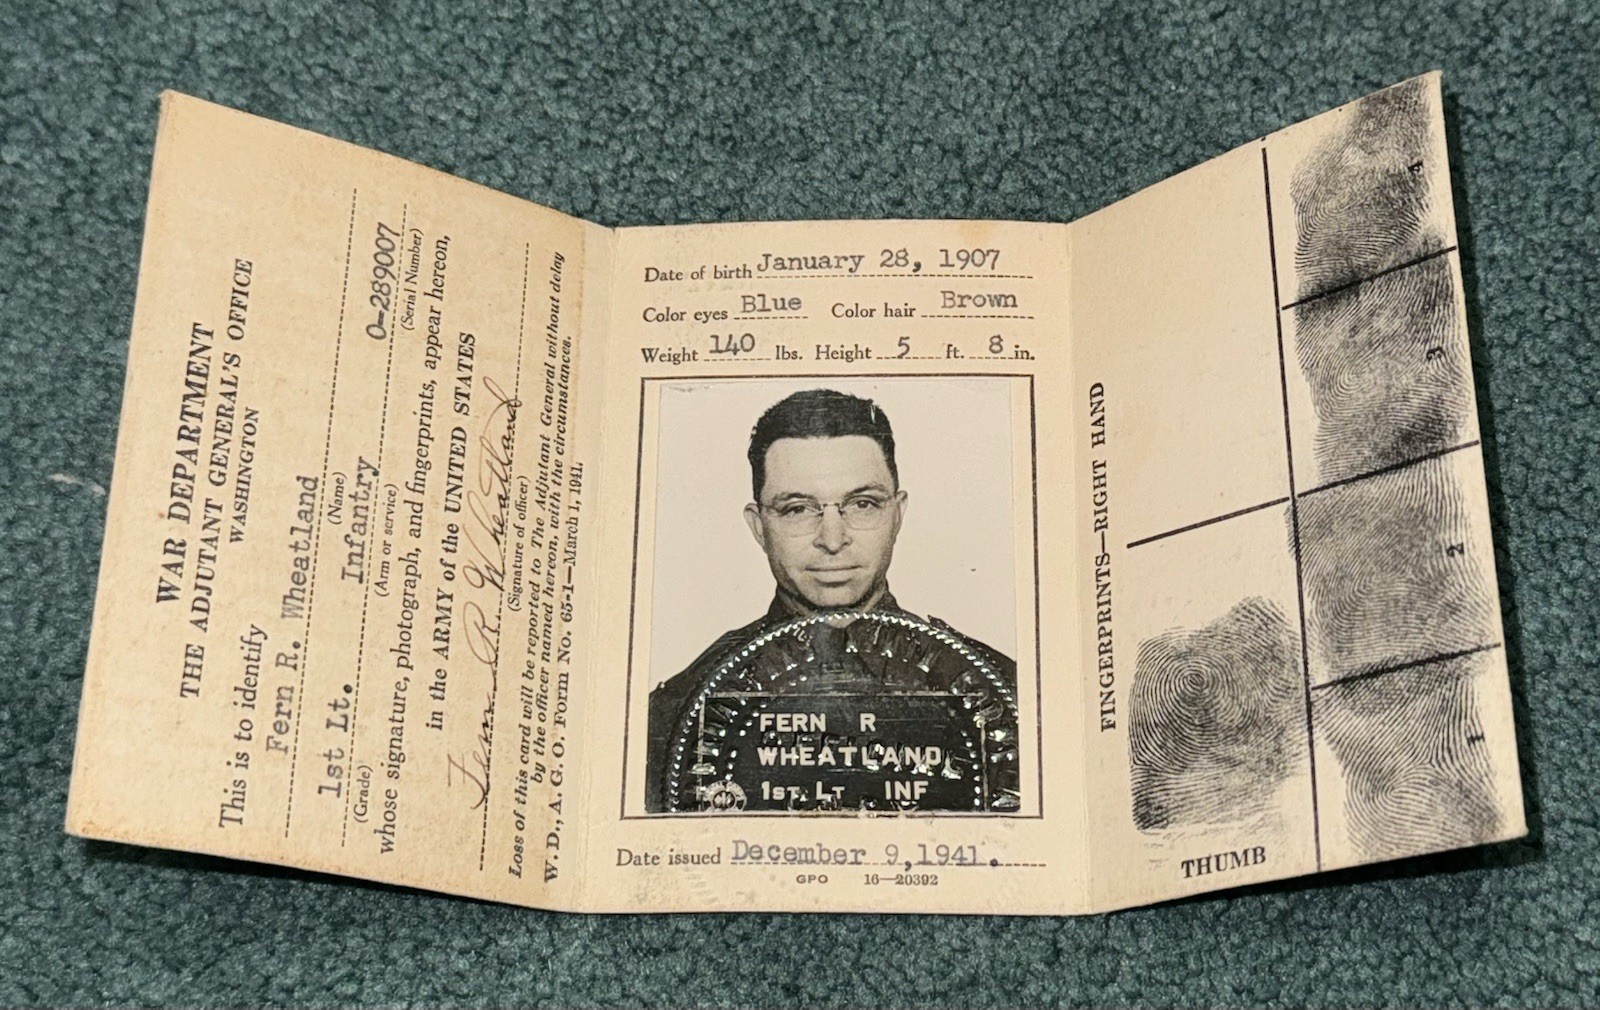 WAR DEPARTMENT
THE ADJUTANT GENERAL'S OFFICE
WASHINGTON
This is to identify
Fern R. Wheatland
(Name)
1st Lt. Infantry O-289007
(Grade) (Arm or service) (Serial Number)
whose signature, photograph, and fingerprints, appear hereon,
in the ARMY of the UNITED STATES
Fern R Wheatland
(Signature of officer)
Loss of this card will be reported to The Adjutant General without delay
by the officer named hereon, with the circumstances.
W. D., A. G. O. Form No. 65-1—March 1, 1941.
Date of birth January 28, 1907
Color eyes Blue Color hair Brown
Weight 140 lbs. Height 5 ft. 8 in.
FERN R
WHEATLAND
1ST. LT INF
Date issued December 9,1941.
GPO 16—20392
FINGERPRINTS—RIGHT HAND
THUMB
1
2
3
4